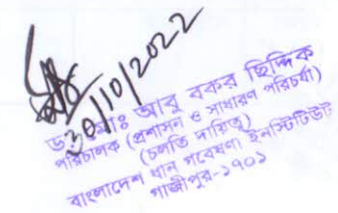 30/10/2022
ড. মোঃ আবু বকর ছিদ্দিক
পরিচালক (প্রশাসন ও সাধারণ পরিচর্যা)
(চলতি দায়িত্ব)
বাংলাদেশ ধান গবেষণা ইনস্টিটিউট
গাজীপুর-১৭০১